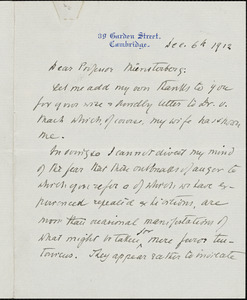 39 Garden Street.
Cambridge.
Dec. 6th 1912
Dear Professor Münsterberg:
Let me add my own thanks to you
for your wise & kindly letter to Dr.
which of course, my wife has shown
me.
In doing so I cannot divest my mind
of the fear that these outbreaks of anger to
which you refer & of which we have ex-
perienced repeated exhibitions, are
more than occasional manifestations of
what might be taken for mere furor teu-
tonicus. They appear rather to indicate